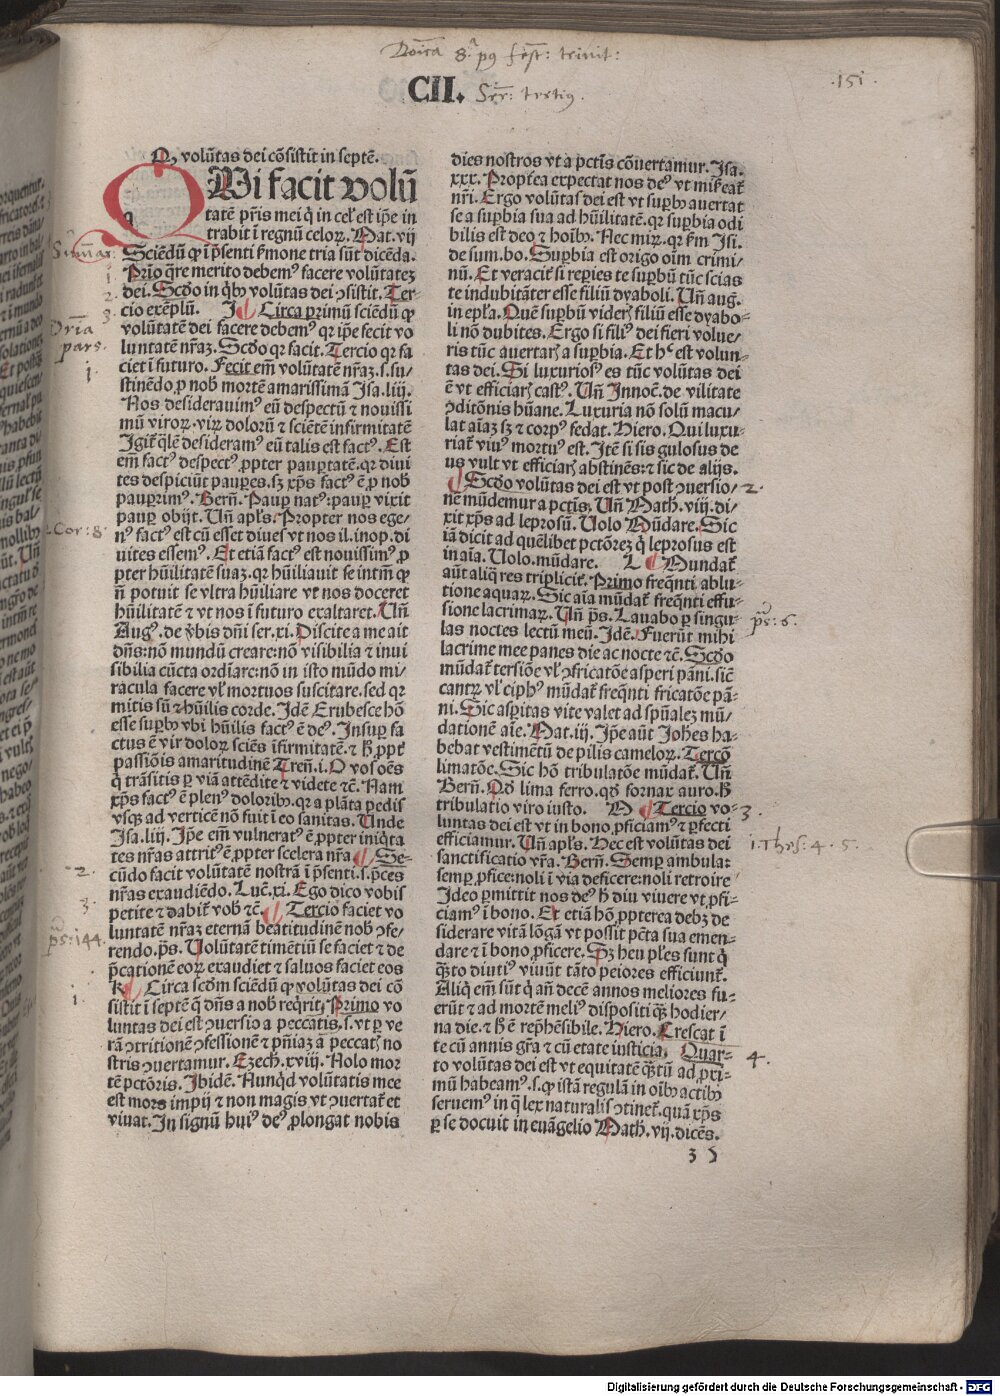 Doīca 8.ᵃ pꝰ fest: trinit:
CII. Ser̄: tertiꝰ.
.151.
Q, volūtas dei cōsistit in septē.
QVi facit volū
tatē pr̄is mei q̇ in celꝭ est ip̄e in
trabit ī regnū celoꝝ. Mat. vij
Sciēdū ꝙ ī p̄senti s̄mone tria sūt dicēda.
Primo q̄re merito debemꝰ facere volūtatez
dei. Scd̄o in qͥbꝰ volūtas dei ꝯsistit. Ter-
cio exēplū. I Circa primū sciēdū ꝙ
volūtatē dei facere debemꝰ qr ip̄e fecit vo
luntatē nr̄aꝫ. Scd̄o qr facit. Tercio qr fa
ciet ī futuro. Fecit em̄ volūtatē nr̄aꝫ .s. su/
stinēdo ꝓ nob̄ mortē amarissimā Isa. liij.
Nos desiderauimꝰ eū despectū ⁊ nouissi
mū viroꝝ. viꝝ doloꝝ ⁊ sciētē infirmitatē
Igit̄ q̄lē desideramꝰ eū talis est factꝰ. Est
em̄ factꝰ despectꝰ ꝓpter pauꝑtatē. qr diui
tes despiciūt pauꝑes. sꝫ xp̄s factꝰ ē ꝓ nob̄
pauꝑrimꝰ. Bern̄. Pauꝑ natꝰ: pauꝑ vixit
pauꝑ obijt. Un̄ apl̄s. Propter nos ege/
nꝰ factꝰ est cū esset diues vt nos il. inop. di
uites essemꝰ. Et etiā factꝰ est nouissimꝰ ꝓ
pter hūilitatē suaꝫ. qr hūiliauit se intm̄ ꝙ
n̄ potuit se vltra hūiliare vt nos doceret
hūilitatē ⁊ vt nos ī futuro exaltaret. Un̄
Augꝰ. de v̄bis dn̄i ser. xi. Discite a me ait
dn̄s: nō mundū creare: nō visibilia ⁊ inui
sibilia cūcta ordīare: nō in isto mūdo mi/
racula facere vl̄ mortuos suscitare. sed qr
mitis sū ⁊ hūilis corde. Idē Erubesce hō
esse suꝑbꝰ vbi hūilis factꝰ ē deꝰ. Insuꝑ fa
ctus ē vir doloꝝ sciēs īfirmitatē. ⁊ h̄ ꝓpt̄
passiōis amaritudinē Tren̄. i. O vos oēs
q̇ trāsitis ꝑ viā attēdite ⁊ videte ⁊c̄. Nam
xp̄s factꝰ ē plenꝰ doloribꝰ. qr a plāta pedis
vsꝙ ad verticē nō fuit ī eo sanitas. Unde
Isa. liij. Ip̄e em̄ vulneratꝰ ē ꝓpter iniqͥta
tes nr̄as attritꝰ ē ꝓpter scelera nr̄a Se-
cūdo facit volūtatē nostrā ī p̄senti .s. p̄ces
nr̄as exaudiēdo. Luc̄. xi. Ego dico vobis
petite ⁊ dabit̄ vob̄ ⁊c̄. Tercio faciet vo
luntatē nr̄aꝫ eternā beatitudinē nob̄ ꝯfe/
rendo. ps̄. Uolūtatē timētiū se faciet ⁊ de
p̄cationē eoꝝ exaudiet ⁊ saluos faciet eos
K Circa scd̄m sciēdū ꝙ volūtas dei cō
sistit ī septē q̄ dn̄s a nob̄ reqͥrit. Primo vo
luntas dei est ꝯuersio a peccatis. s. vt ꝑ ve
rā ꝯtritionē ꝯfessionē ⁊ pn̄iaꝫ a peccat̄ no
stris ꝯuertamur. Ezech. xviij. Nolo mor
tē pctōris. Ibidē. Nunqͥd volūtatis mee
est mors impij ⁊ non magis vt ꝯuertat̄ et
viuat. In signū huiꝰ deꝰ ꝓlongat nobis
dies nostros vt a pctīs cōuertamur. Isa.
xxx. Propt̄ea expectat nos deꝰ vt mis̄eat̄
nr̄i. Ergo volūtas dei est vt suꝑbꝰ auertat
se a suꝑbia sua ad hūilitatē. qr suꝑbia odi
bilis est deo ⁊ hoībꝰ. Nec miꝝ. qr s̄m Isi.
de sum. bo. Suꝑbia est origo oīm crimi/
nū. Et veracit̄ si reꝑies te suꝑbū tūc scias
te indubitāter esse filiū dyaboli. Un̄ aug.
in epl̄a. Quē suꝑbū videris filiū esse dyabo/
li nō dubites. Ergo si filiꝰ dei fieri volue/
ris tūc auertaris a suꝑbia. Et hᶜ est volun/
tas dei. Si luxuriosꝰ es tūc volūtas dei
ē vt efficiaris castꝰ. Un̄ Innoc̄. de vilitate
ꝯditōnis hūane. Luxuria nō solū macu/
lat aīaꝫ sꝫ ⁊ corpꝰ fedat. Hiero. Qui luxu/
riat̄ viuꝰ mortuꝰ est. Itē si sis gulosus de
us vult vt efficiaris abstinēs: ⁊ sic de alijs.
Scd̄o volūtas dei est vt post ꝯuersio/
nē mūdemur a pctīs. Un̄ Math. viij. di/
xit xp̄s ad leprosū. Uolo Mūdare. Sic
iā dicit ad quēlibet pctōrez q̇ leprosus est
in aīa. Uolo. mūdare. L Mundat̄
aūt aliq̄ res triplicit̄. Primo freq̄nti ablu/
tione aquaꝝ. Sic aīa mūdat̄ freq̄nti effu/
sione lacrimaꝝ. Un̄ ps̄. Lauabo ꝑ singu/
las noctes lectū meū. Idē. Fuerūt mihi
lacrime mee panes die ac nocte ⁊c̄. Scd̄o
mūdat̄ tersiōe vl̄ ꝯfricatōe asperi pāni. sic
cantꝝ vl̄ ciphꝰ mūdat̄ freq̄nti fricatōe pā/
ni. Sic asꝑitas vite valet ad spūalez mū/
dationē aīe. Mat. iij. Ip̄e aūt Joh̄es ha/
bebat vestimētū de pilis cameloꝝ. Tercō
limatōe. Sic hō tribulatōe mūdat̄. Un̄
Bern̄. Qd̄ lima ferro. qd̄ fornax auro. h̄
tribulatio viro iusto. M Tercio vo-
luntas dei est vt in bono ꝓficiamꝰ ⁊ ꝑfecti
efficiamur. Un̄ apl̄s. Hec est volūtas dei
sanctificatio vr̄a. Bern̄. Semꝑ ambula:
semꝑ ꝓfice: noli ī via deficere: noli retroire
Ideo ꝑmittit nos deꝰ h̄ diu viuere vt ꝓfi/
ciamꝰ ī bono. Et etiā hō ꝓpterea debꝫ de
siderare vitā lōgā vt possit pctā sua emen/
dare ⁊ ī bono ꝓficere. Sꝫ heu pl̄es sunt q̇
qͣto diutiꝰ viuūt tāto peiores efficiunt̄.
Aliq̇ em̄ sūt q̇ an̄ decē annos meliores fu/
erūt ⁊ ad mortē meliꝰ dispositi qͣꝫ hodier/
na die. ⁊ h̄ ē rep̄hēsibile. Hiero. Crescat ī
te cū annis gr̄a ⁊ cū etate iusticia. Quar-
to volūtas dei est vt equitatē qͣtū ad ꝓxi-
mū habeamꝰ. s. ꝙ istā regulā in oībꝰ actibꝰ
seruemꝰ in q̄ lex naturalis ꝯtinet̄. quā xp̄s
ꝑ se docuit in euāgelio Math. vij. dicēs.
3 ꝯ
Sūmar:
1.
2.
3.
pars.
1.
2 Cor: 8.
2.
3.
ps: 144.
1.
2.
ps: 6.
3.
1. Thes: 4. 5.
4.
Digitalisierung gefördert durch die Deutsche Forschungsgemeinschaft - DFG